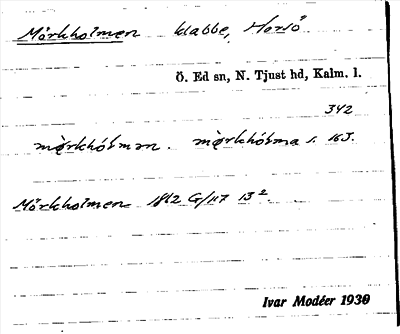 Mörkholmen klabbe, Horsö
Ö. Ed sn, N. Tjust hd, Kalm. l.
342
s. 163.
Mörkholmen 1862 G/117 13²
Ivar Modéer 1930